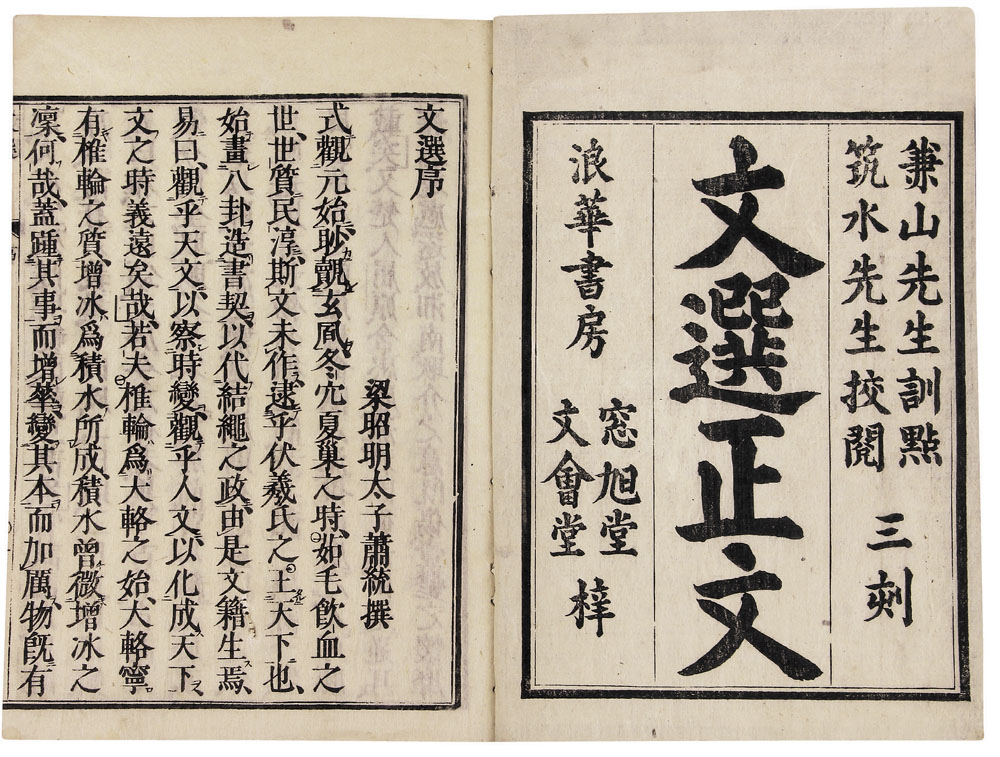 兼山先生訓點
筑水先生挍閲
三刻
文選正文
浪華書房
窓旭堂
文會堂
梓
文選序
梁昭明太子蕭統撰
式觀元始眇覿玄風冬穴夏巢之時茹毛飲血之
世世質民淳斯文未作逮乎伏羲氏之王天下也
始畫八卦造書契以代結繩之政由是文籍生焉
易曰觀乎天文以察時變觀乎人文以化成天下
文之時義遠矣哉若夫椎輪爲大輅之始大輅寧
有椎輪之質增冰爲積水所成積水曾微增冰之
凜何哉蓋踵其事而增華變其本而加厲物既有